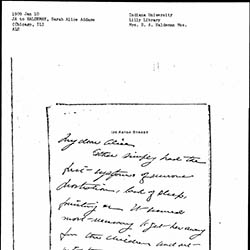 1909 Jan 10
JA to HALDEMAN, Sarah Alice Addams
(Chicago, Ill)
ALS
Indiana University
Lilly Library
Mrs. S. A. Haldeman Mss.
My dear Alice
Esther simply had the
first symptoms of nervous
prostration, lack of sleep,
fainting on It seemed
most necessary to get her away
for the children and are